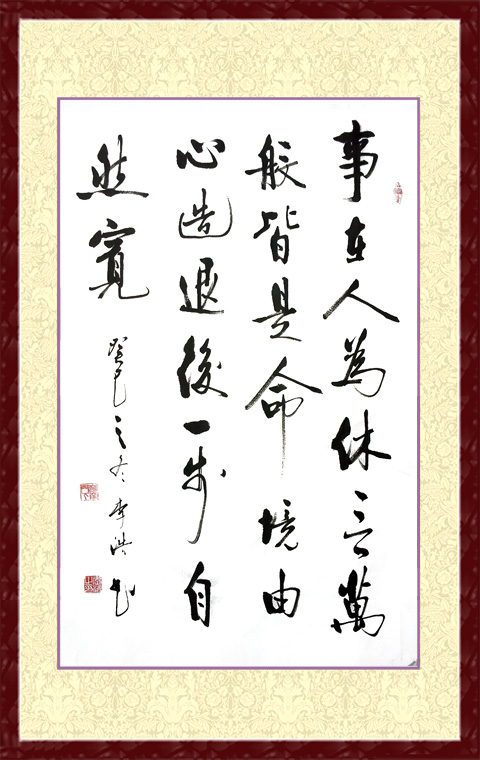 事在人為休言萬
般皆是命境由
心造退後一步自
然寬
癸巳之冬李洪书